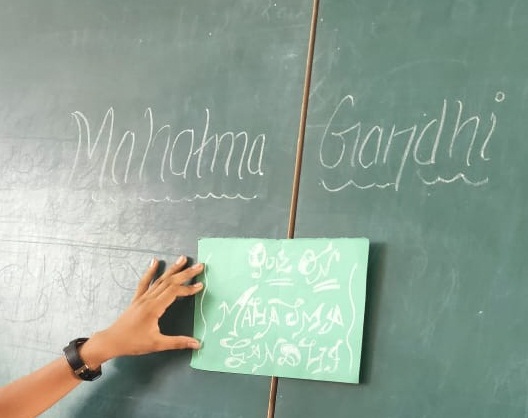 Mahatma Gandhi
QUIZ ON
MAHATMA
GANDHI